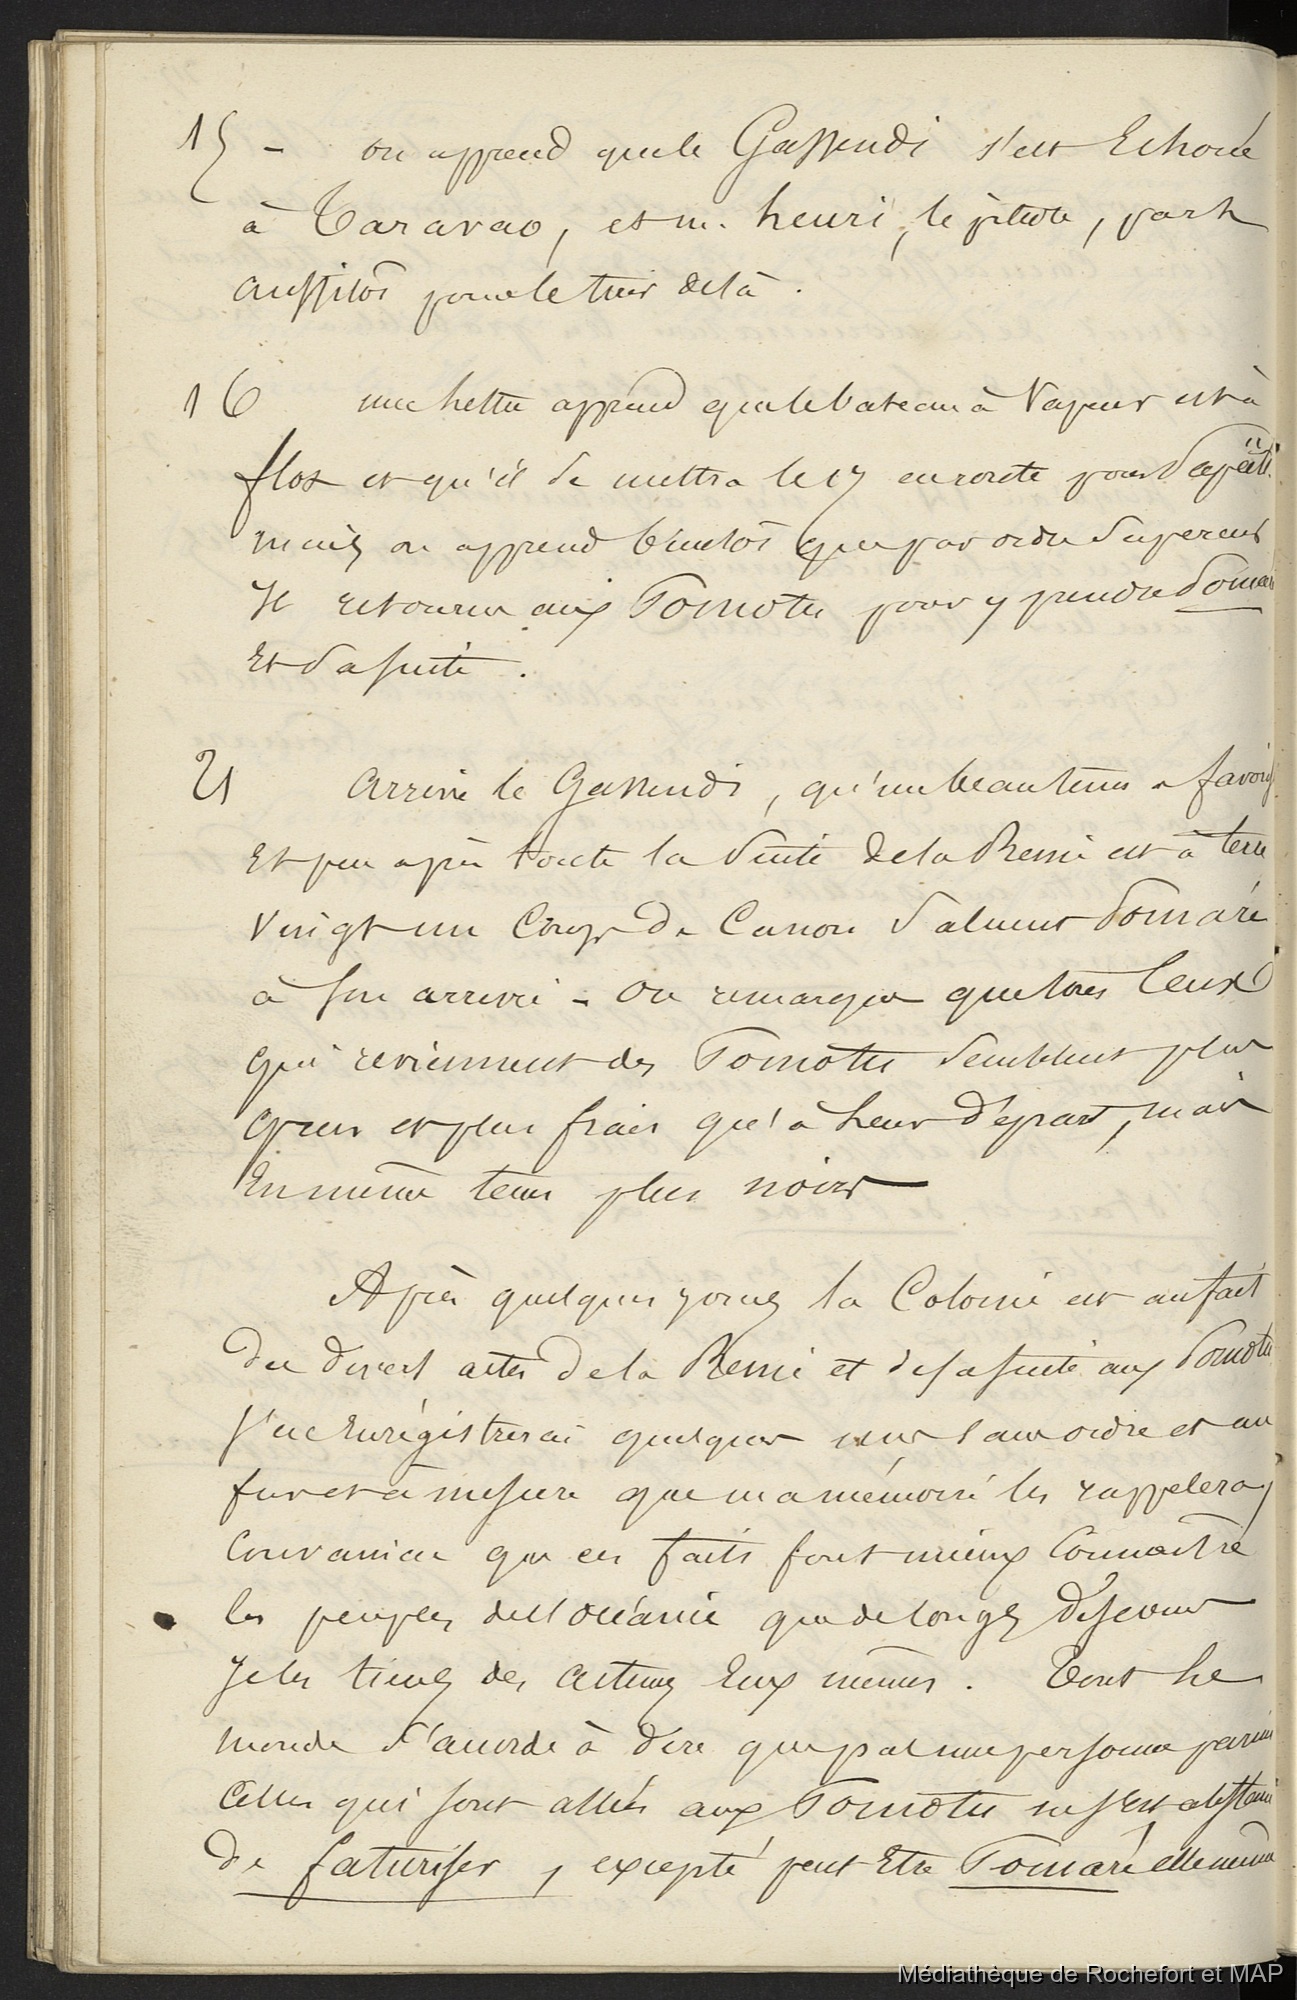 15 - on apprend que le Gassendi s'est Echoué
à Taravao, et m. henri, le pilote, part
aussitôt pour le tirer de là.
16 une lettre apprend que le bateau à Vapeur est à
flot et qu'il se mettra le 17 en route pour Papëiti.
mais on apprend bientôt que par ordre Superieur
Il retourne aux Pomotu pour y prendre Pomaré
Et Sa suite.
21 arrive le Gassendi, qu'un beau tems a favorisé
Et peu après toute la Suite de la Reine est à terre
Vingt un Coups de Canon Saluent Pomaré
à son arrivée - On remarque que tous Ceux
qui reviennent des Pomotu Semblent plus
gras et plus frais qu'à leur départ, mais
En même tems plus noirs
Après quelques jours la Colonie est au fait
des divers actes de la Reine et de sa suite aux Pomotu
J'en Enrégistrerai quelques uns Sans ordre et au
fur et à mesure que ma mémoire les rappelera,
Convaincu que ces faits font mieux Connaître
les peuples de l'Océanie que de longs discours
Je les tiens des acteurs Eux mêmes. Tout le
monde S'accorde à dire que pas une personne parmi
Celles qui sont allées aux Pomotu ne s'est abstenu
de faturiser, excepté peut Etre Pomaré elle même
Médiathèque de Rochefort et MAP